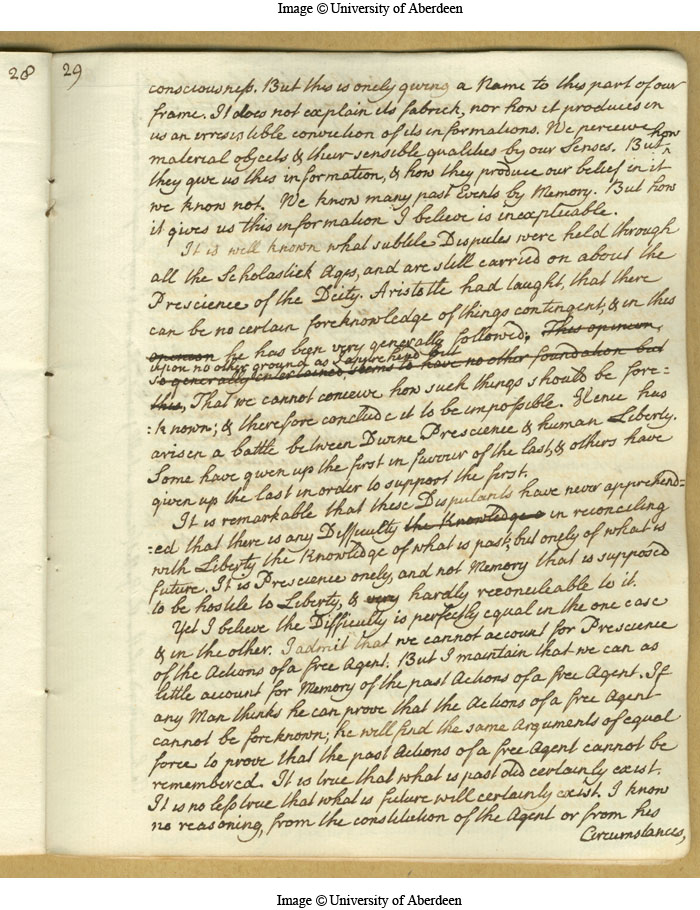 Image © University of Aberdeen
28
29
consciousness. But this is onely giving a Name to this part of our
frame. It does not explain its fabrick, nor how it produces in
us an irresistible conviction of its informations. We perceive
material objects & their sensible qualities by our Senses. But how
they give us this information, & how they produce our belief in it
we know not. We know many past Events by Memory. But how
it gives us this information I believe is inexplicable.
It is well known what subtile Disputes were held through
all the Scholastick Ages, and are still carried on about the
Prescience of the Deity. Aristotle had taught, that there
can be no certain foreknowledge of things contingent, & in this
opinion he has been very generally followed; This opinion,
upon no other ground as I apprehend but
so generally entertained, seems to have no other foundation but
this, That we cannot conceive how such things should be fore-
:known; & therefore conclude it to be impossible. Hence has
arisen a battle between Divine Prescience & human Liberty.
Some have given up the first in favour of the last, & others have
given up the last in order to support the first.
It is remarkable that these Disputants have never apprehend=
:ed that there is any Difficulty the Knowledge o in reconciling
with Liberty the Knowledge of what is past; but onely of what is
future. It is Prescience onely, and not Memory that is supposed
to be hostile to Liberty, & very hardly reconcileable to it.
Yet I believe the Difficulty is perfectly equal in the one case
& in the other. I admit that we cannot account for Prescience
of the Actions of a free Agent. But I maintain that we can as
little account for Memory of the past Actions of a free Agent. If
any Man thinks he can prove that the Actions of a free Agent
cannot be foreknown; he will find the same Arguments of equal
force to prove that the past Actions of a free Agent cannot be
remembered. It is true that what is past did certainly exist.
It is no less true that what is future will certainly exist. I know
no reasoning, from the constitution of the Agent or from his
Circumstances,
Image © University of Aberdeen